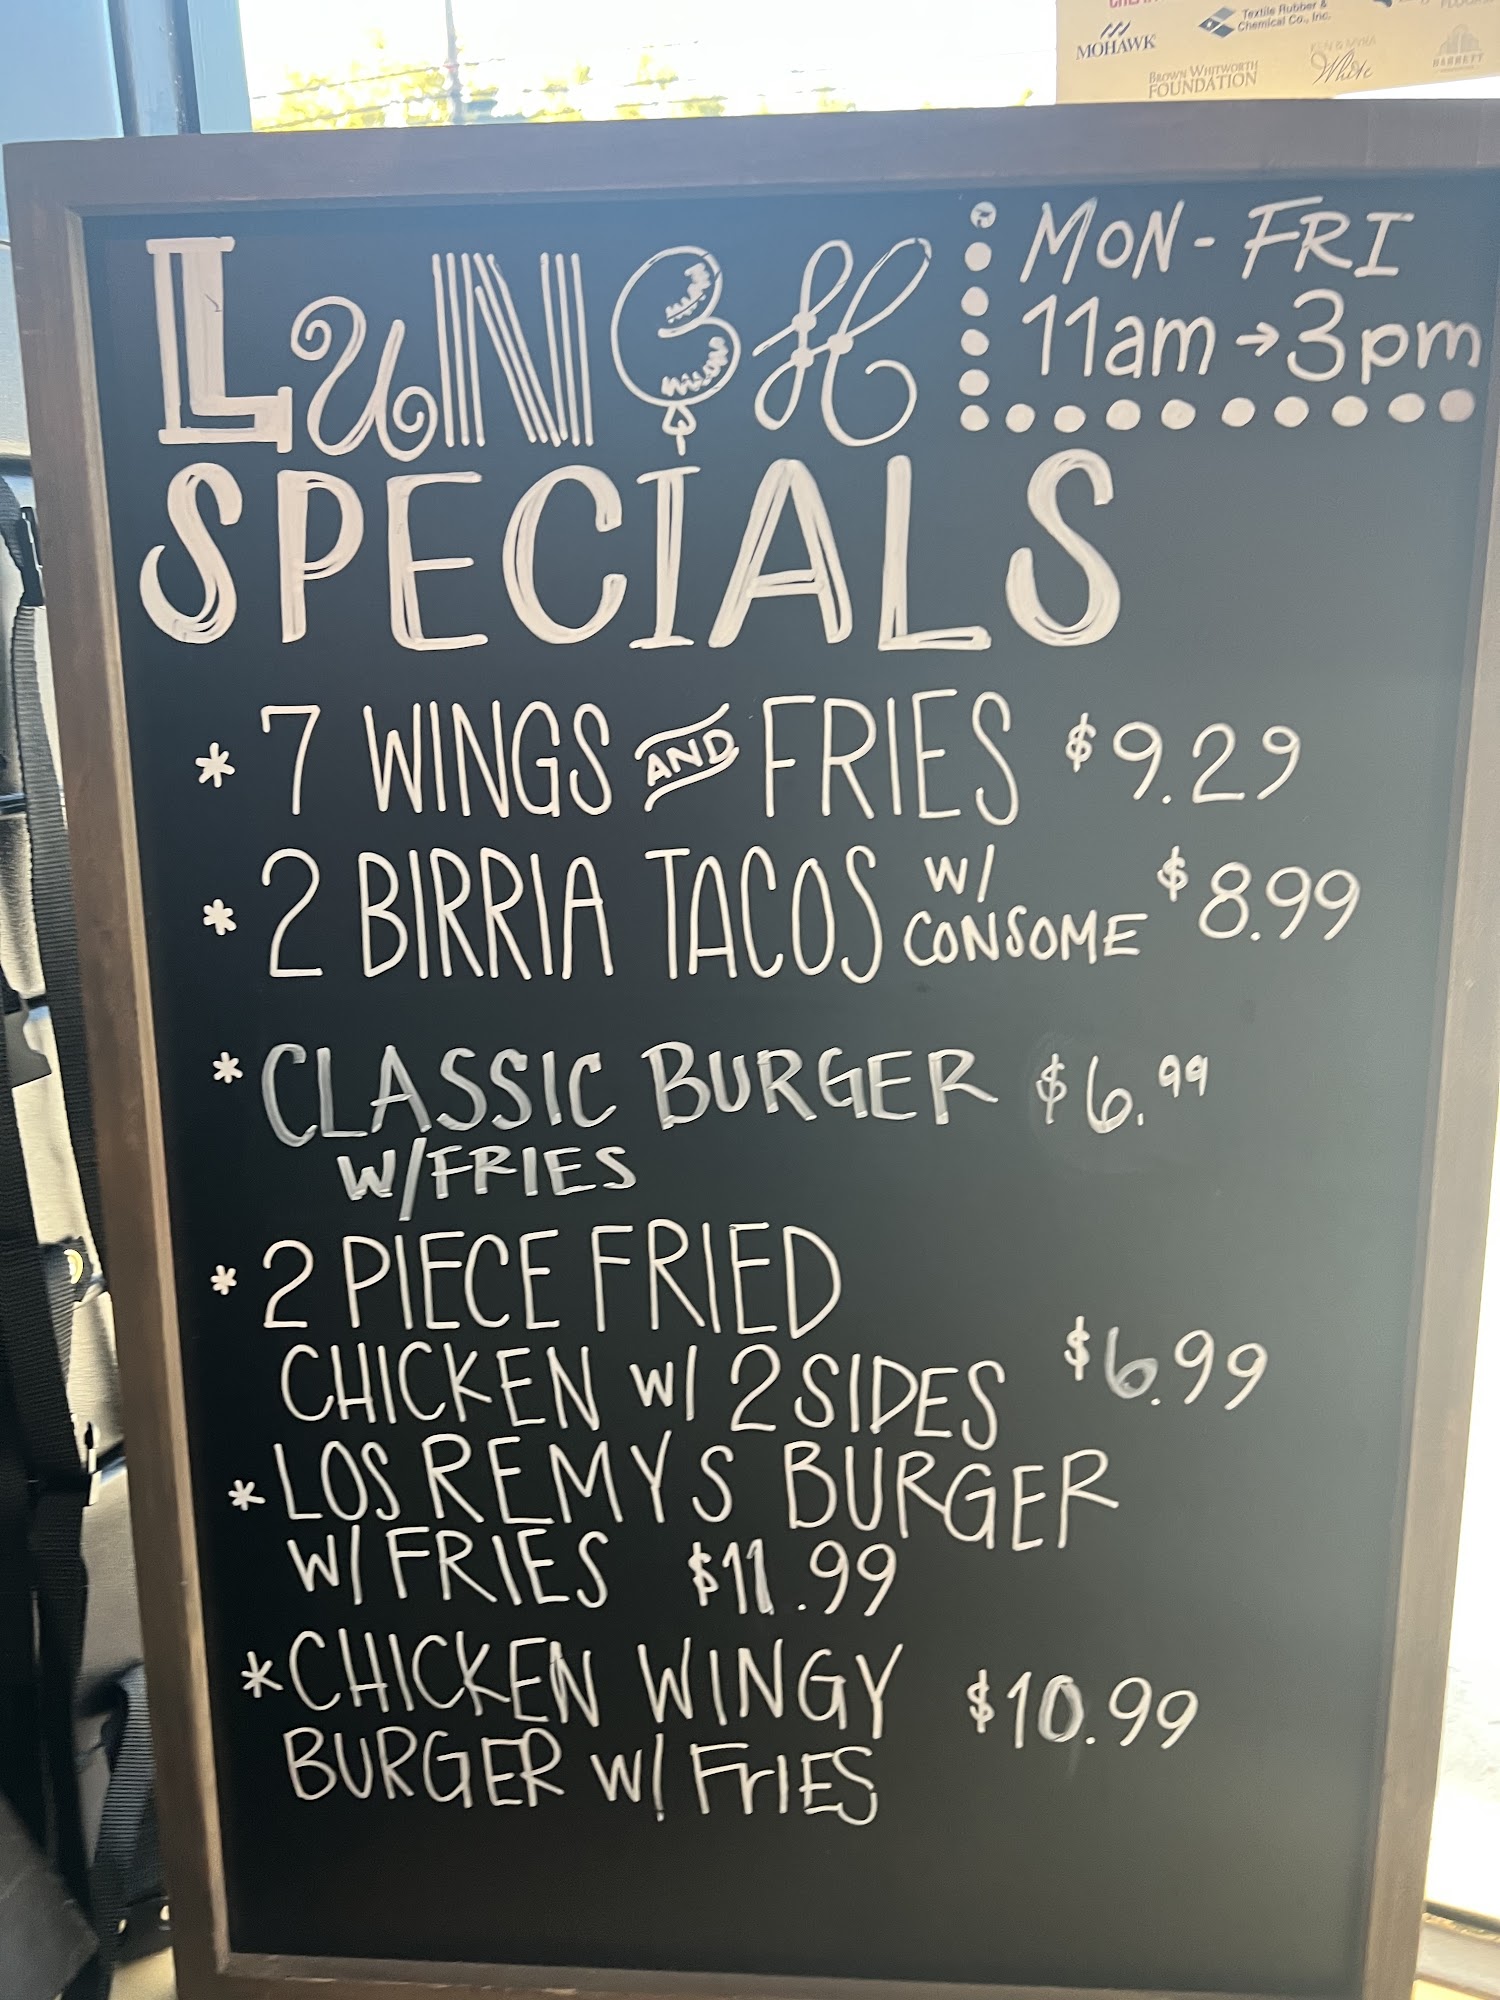 Textile Rubber &
Chemical Co., Inc.
MOHAWK
BROWN WHITWORTH
FOUNDATION
KEN & MYRA
White
BARRETT
LUNCH
MON-FRI
11am→3pm
SPECIALS
* 7 WINGS AND FRIES $9.29
* 2 BIRRIA TACOS W/ CONSOME $8.99
* CLASSIC BURGER $6.99
W/FRIES
* 2 PIECE FRIED
CHICKEN W/ 2 SIDES $6.99
* LOS REMYS BURGER
W/ FRIES $11.99
* CHICKEN WINGY $10.99
BURGER W/ FrIES